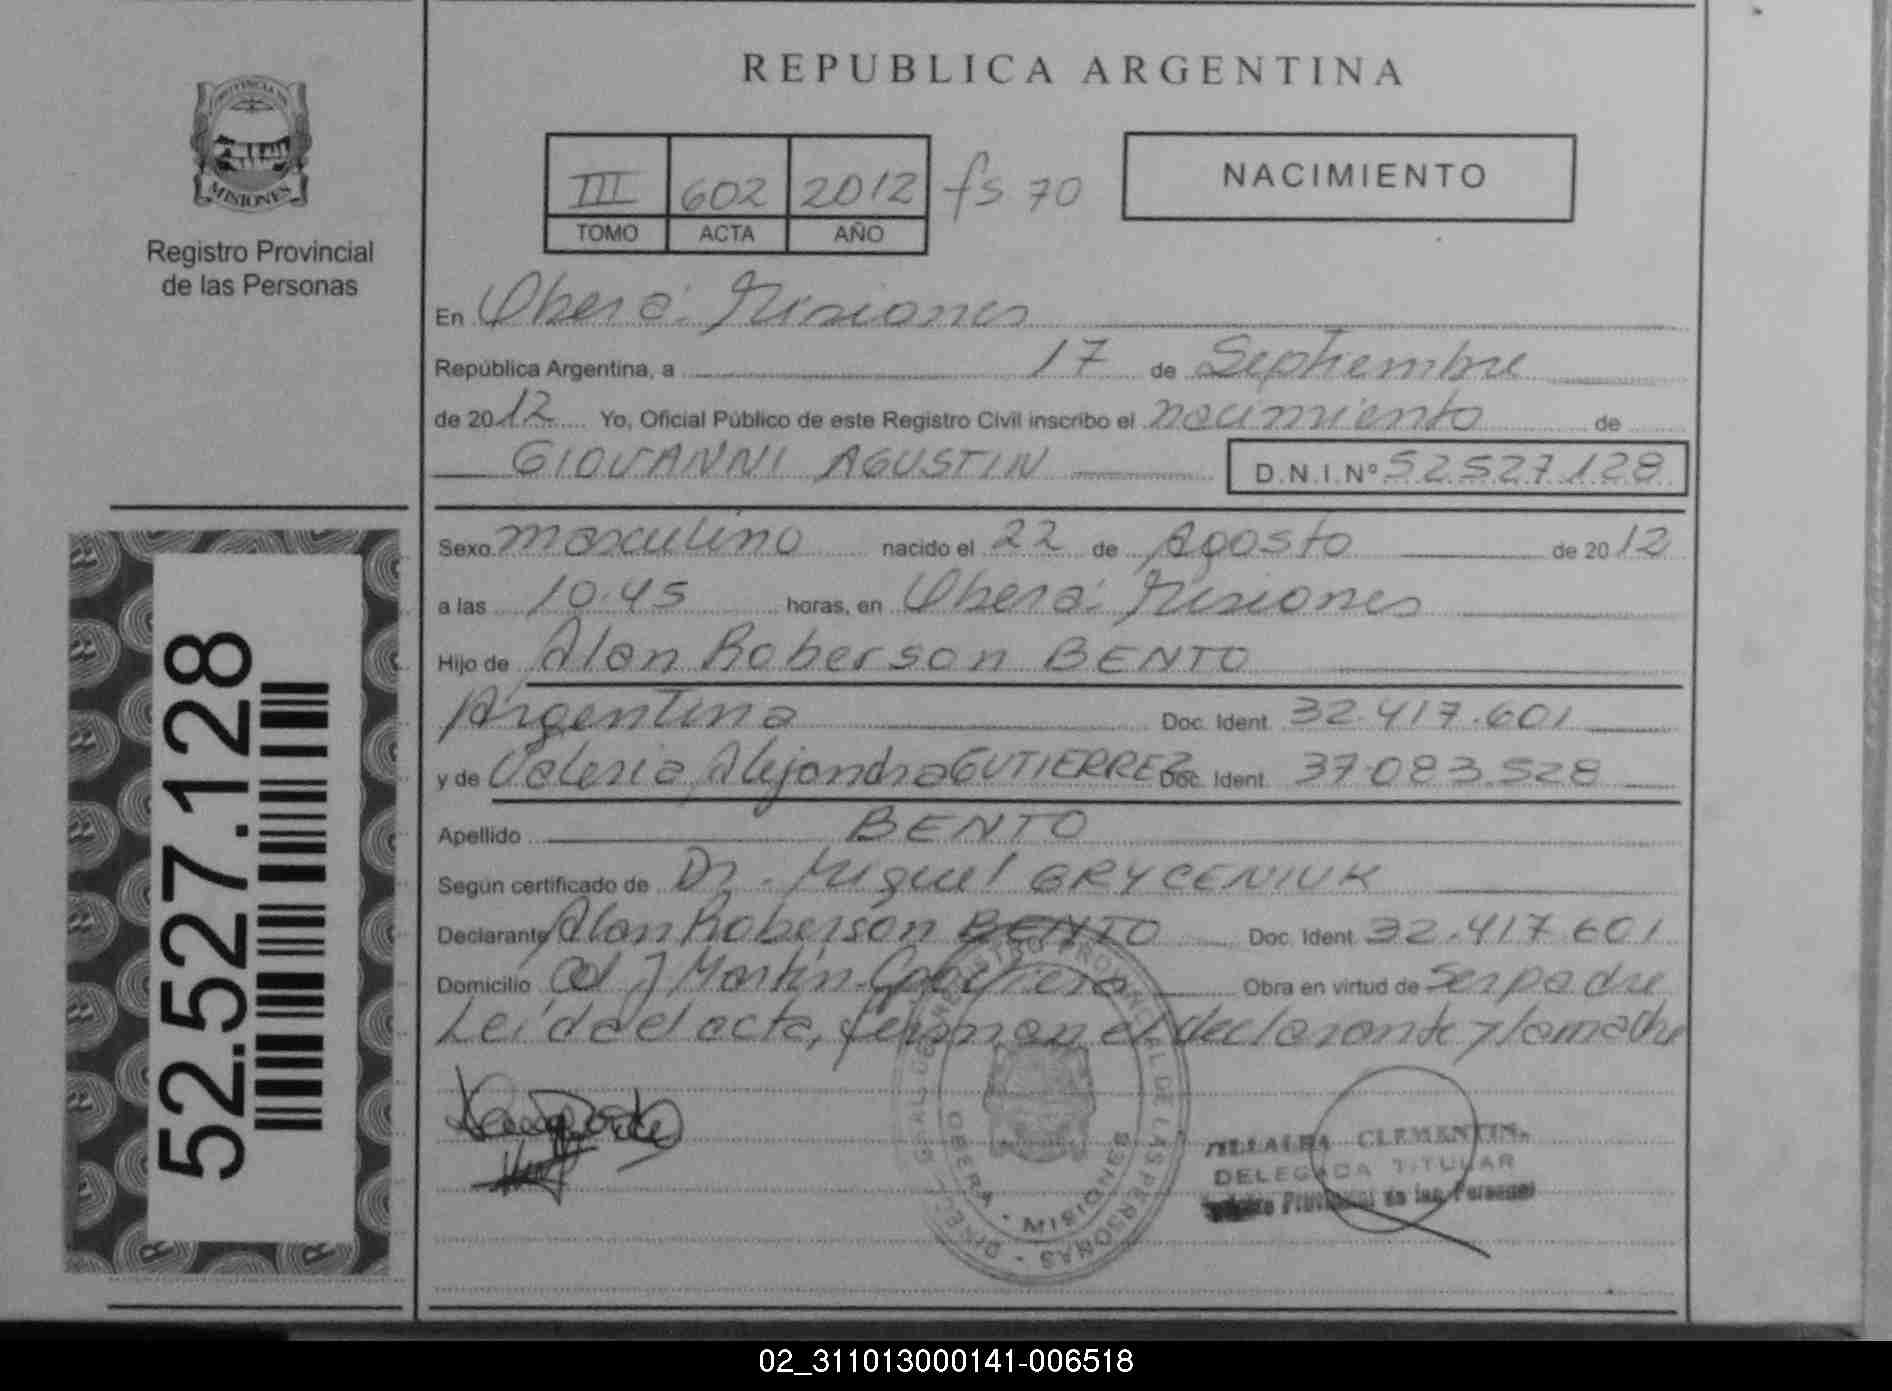 REPUBLICA ARGENTINA
PROVINCIA DE
MISIONES
Registro Provincial
de las Personas
III 602 2012 fs 70
TOMO ACTA AÑO
NACIMIENTO
En Oberá: Misiones
República Argentina, a 17 de Septiembre
de 2012 Yo, Oficial Público de este Registro Civil inscribo el nacimiento de
GIOVANNI AGUSTIN D.N.I.Nº 52.527.128
Sexo masculino nacido el 22 de Agosto de 2012
a las 10.45 horas, en Oberá: Misiones
Hijo de Alan Roberson BENTO
Argentina Doc. Ident. 32.417.601
y de Valeria Alejandra GUTIERREZ Doc. Ident. 37.083.528
Apellido BENTO
Según certificado de Dr. Miguel GRYCENIUK
Declarante Alan Roberson BENTO Doc. Ident. 32.417.601
Domicilio J Martín Obra en virtud de Ser padre
Leída el acta, firman el declarante y la madre
52.527.128
PROVINCIAL DE LAS PERSONAS
OBERA - MISIONES
CLEMENTINA
DELEGADA TITULAR
Provincial de las Personas
02_311013000141-006518